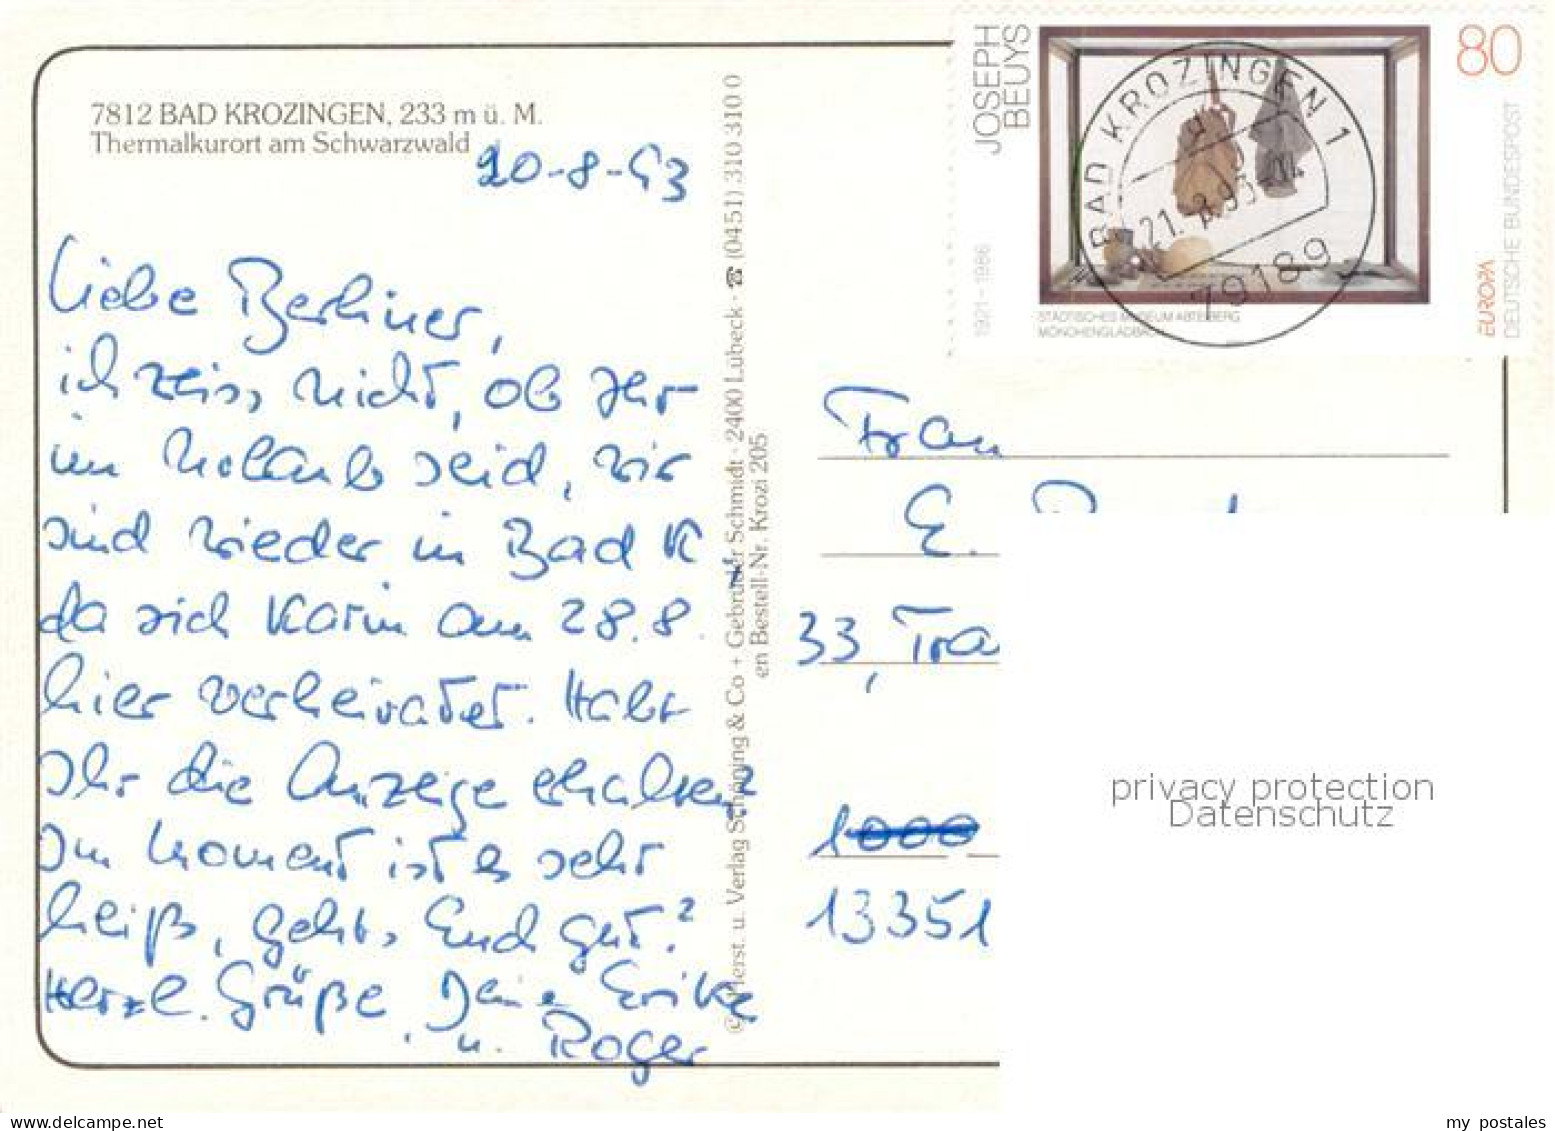 7812 BAD KROZINGEN, 233 m ü. M.
Thermalkurort am Schwarzwald
20-8-93
Liebe Berliner,
ich weiss nicht, ob Ihr
im Urlaub seid, wir
sind wieder in Bad K
da sich Karin am 28.8.
hier verheiratet. Habt
Ihr die Anzeige erhalten?
Im Moment ist es sehr
heiß, geht's Euch gut?
Herzl. Grüße, Deine Erika
u. Roger
© Herst. u. Verlag Schöning & Co + Gebrüder Schmidt · 2400 Lübeck · ☎ (0451) 310 310 0
en Bestell-Nr. Krozi 205
JOSEPH
BEUYS
1921–1986
80
STÄDTISCHES MUSEUM ABTEIBERG
MÖNCHENGLADBACH
EUROPA
DEUTSCHE BUNDESPOST
BAD KROZINGEN 1
21.-8.93
79189
Frau
E.
33, Tra
1000
13351
privacy protection
Datenschutz
my postales